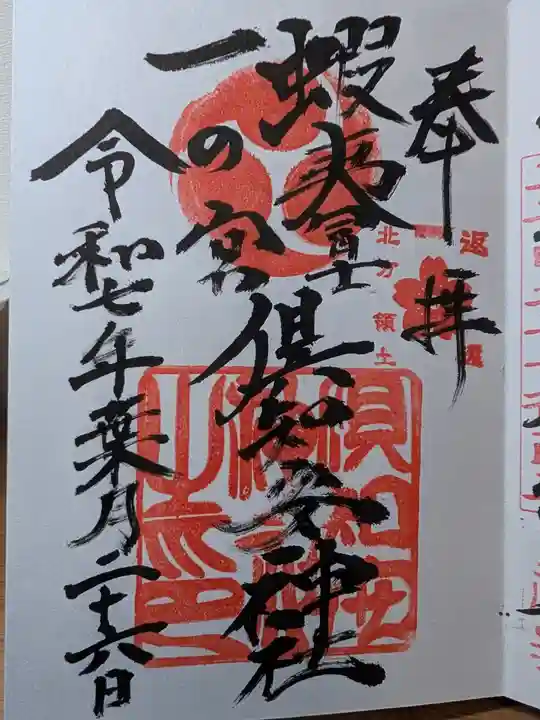 奉拝
北方領土
返還
蝦夷富士
倶知安神社
一の宮
令和七年葉月二十六日